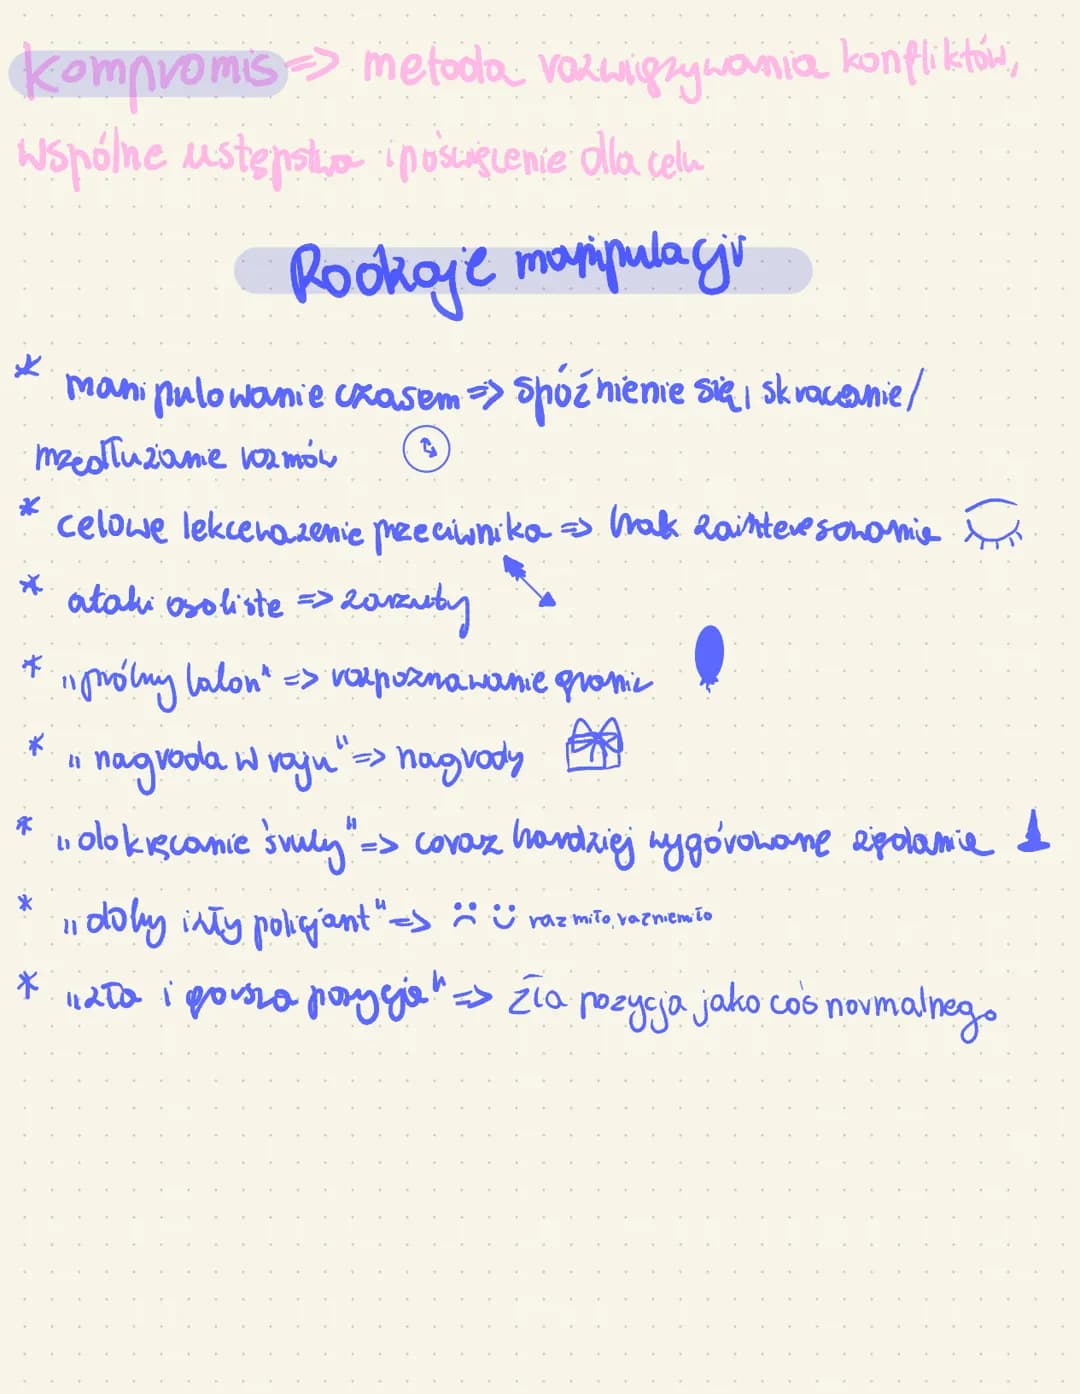 kompromis => metoda rozwiązywania konfliktów,
wspólne ustępstwa i poświęcenie dla celu
Rodzaje manipulacji
* manipulowanie czasem => spóźnienie się, skracanie/
przedłużanie rozmów
* celowe lekceważenie przeciwnika => brak zainteresowania
* ataki osobiste => zarzuty
* „próbny balon" => rozpoznawanie granic
* „nagroda w raju" => nagrody
* „dokręcanie śruby" => coraz bardziej wygórowane żądania
* „dobry i zły policjant" => raz miło, raz niemiło
* „zła i gorsza pozycja" => zła pozycja jako coś normalnego